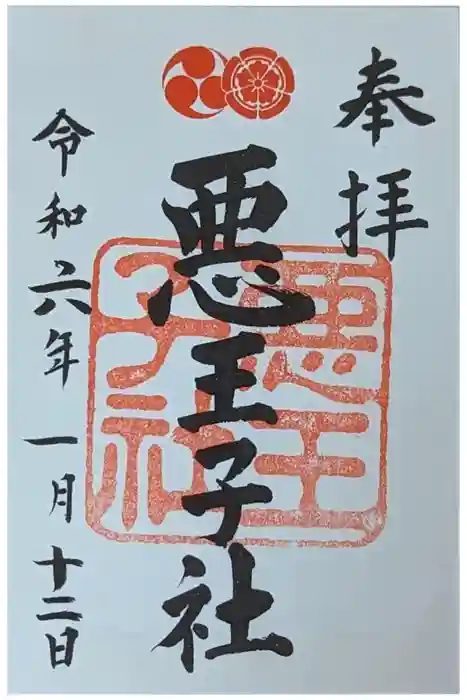 奉拝
悪王子社
悪王
子社
令和六年一月十二日